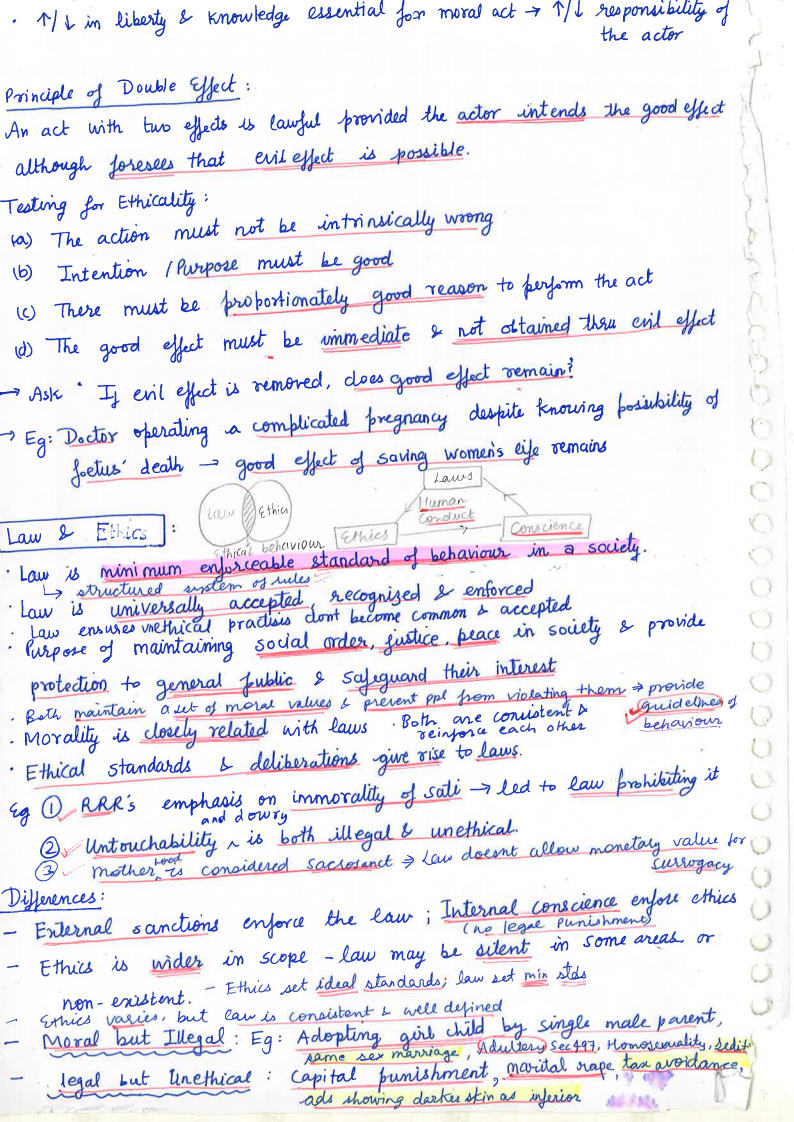 · ↑/↓ in liberty & knowledge essential for moral act → ↑/↓ responsibility of
the actor
Principle of Double Effect :
An act with two effects is lawful provided the actor intends the good effect
although foresees that evil effect is possible.
Testing for Ethicality :
(a) The action must not be intrinsically wrong
(b) Intention /Purpose must be good
(c) There must be proportionately good reason to perform the act
(d) The good effect must be immediate & not obtained thru evil effect
→ Ask " If evil effect is removed, does good effect remain?
→ Eg: Doctor operating a complicated pregnancy despite knowing possibility of
foetus' death → good effect of saving women's life remains
Law & Ethics :
Law Ethics
Ethical behaviour
Laws
Human
Conduct
Ethics Conscience
· Law is minimum enforceable standard of behaviour in a society.
↳ structured system of rules
· Law is universally accepted, recognised & enforced
· Law ensures unethical practises dont become common & accepted
· Purpose of maintaining social order, justice, peace in society & provide
protection to general public & safeguard their interest
· Both maintain a set of moral values & prevent ppl from violating them → provide
guidelines of
behaviour
· Morality is closely related with laws · Both are consistent &
reinforce each other
· Ethical standards & deliberations give rise to laws.
Eg ① RRR's emphasis on immorality of sati → led to law prohibiting it
and dowry
② Untouchability ~ is both illegal & unethical.
③ Motherhood is considered sacrosanct → Law doesnt allow monetary value for
surrogacy
Differences:
– External sanctions enforce the law ; Internal conscience enfore ethics
(no legal punishment)
– Ethics is wider in scope – law may be silent in some areas or
non-existent. – Ethics set ideal standards; law set min stds
– Ethics varies, but law is consistent & well defined
– Moral but Illegal : Eg: Adopting girl child by single male parent,
same sex marriage, Adultery Sec497, Homosexuality, Sedit
– legal but Unethical : Capital punishment, marital rape, tax avoidance,
ads showing darker skin as inferior